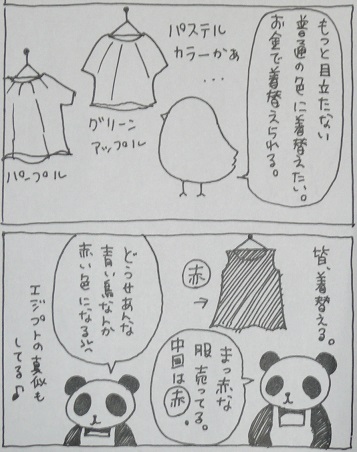 もっと目立たない
普通の色に着替えたい。
お金で着替えられる。
パステル
カラーかぁ
...
グリーン
アップル
パープル
皆、着替える。
赤
→
まっ赤な
服 売ってる。
中国は赤。
どうせあんな
青い鳥なんか
赤い色になる
エジプトの真似も
してる♪